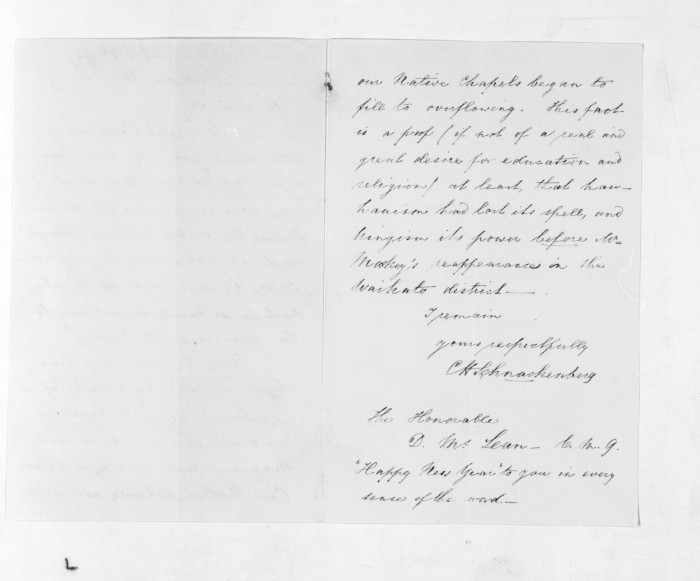 our Native Chapels began to
fill to overflowing. This fact
is a proof (if not of a real and
great desire for education and
religion) at least, that hau-
hauism had lost its spell, and
Kingism its power before Mr
reappearance in the
Waikato district—
I remain
yours respectfully
CH Schnackenberg
The Honorable
D. Mc Lean — C. M. G.
"Happy New Year" to you in every
sense of the word.—
L